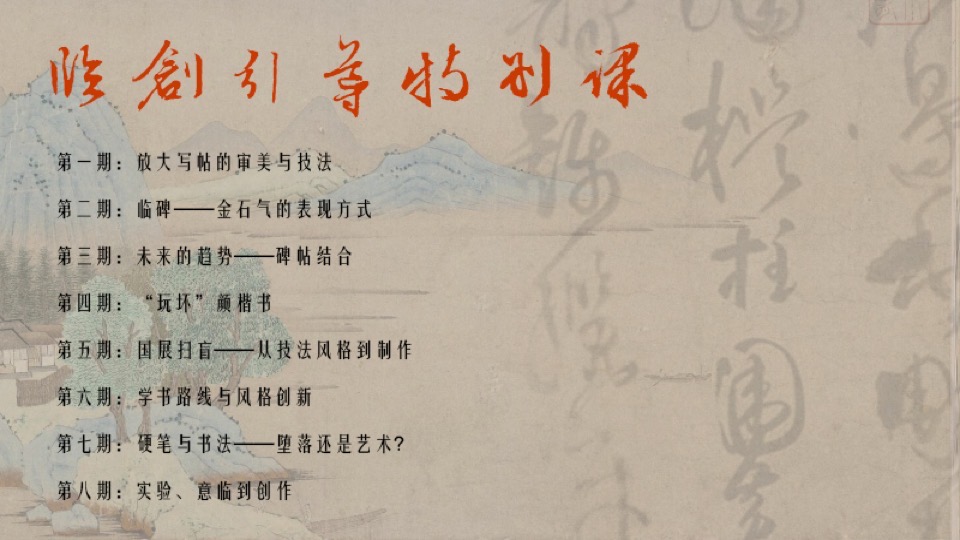 临創引导特别课
第一期：放大写帖的审美与技法
第二期：临碑——金石气的表现方式
第三期：未来的趋势——碑帖结合
第四期：“玩坏”颜楷书
第五期：国展扫盲——从技法风格到制作
第六期：学书路线与风格创新
第七期：硬笔与书法——堕落还是艺术?
第八期：实验、意临到创作